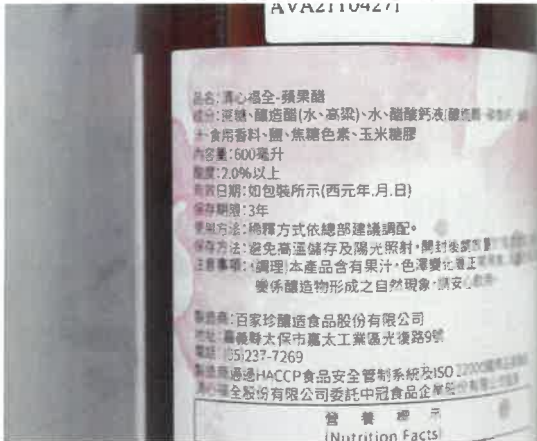 AVA21104271
品名:清心福全-蘋果醋
成分:蔗糖、釀造醋(水、高粱)、水、醋酸鈣液(
食用香料、鹽、焦糖色素、玉米糖膠
內容量:600毫升
酸度:2.0%以上
有效日期:如包裝所示(西元年.月.日)
保存期限:3年
使用方法:稀釋方式依總部建議調配。
保存方法:避免高溫儲存及陽光照射,開封後
注意事項:(調理)本產品含有果汁,色澤變化
變係釀造物形成之自然現象,請安心飲用。
製造商:百家珍釀造食品股份有限公司
地址:嘉義縣太保市嘉太工業區光復路9號
電話:(05)237-7269
製造商通過HACCP食品安全管制系統及ISO 22000
清心福全股份有限公司委託中冠食品企業股份有限公司
營養標示
(Nutrition Facts)